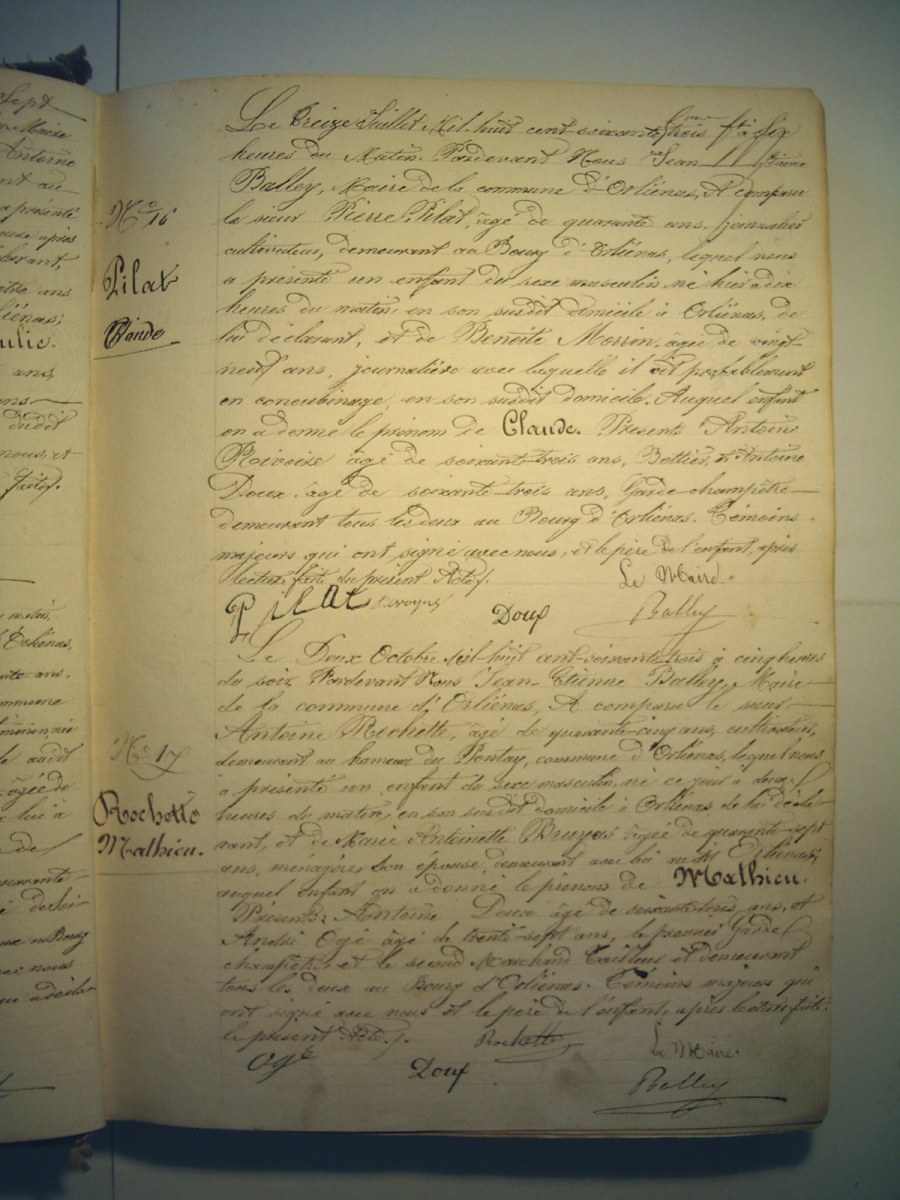 Sept
Maire
Antoine
a présenté
après
ans
ulie.
ans,
dudit
nous, et
Le Treize Juillet Mil-huit cent-soixante trois à six
heures du Matin. Pardevant Nous Jean Etienne
Balley, Maire de la commune d'Orliénas, A comparu
le sieur Pierre Pilat, âgé de quarante ans, journalier
cultivateur, demeurant au Bourg d'Orliénas, lequel nous
a présenté un enfant du sexe masculin, né hier à dix
heures du matin en son susdit domicile à Orliénas, de
lui déclarant, et de Benoîte Morrin, âgée de vingt-
neuf ans, journalière avec laquelle il vit probablement
en concubinage, en son susdit domicile. Auquel enfant
on a donné le prénom de Claude. Présents Antoine
âgé de soixante-trois ans, Bottier, et Antoine
Doux, âgé de soixante-trois ans, Garde-champêtre
demeurant tous les deux au Bourg d'Orliénas. Témoins
majeurs qui ont signé avec nous, et le père de l'enfant, après
lecture faite du présent Acte.
N° 16
Pilat
Claude
Le Maire.
Pilat Doux Balley
Le Deux Octobre Mil-huit cent-soixante trois à cinq heures
du soir, Pardevant Nous Jean-Etienne Balley, Maire
de la commune d'Orliénas, A comparu le sieur
Antoine Rochette, âgé de quarante-cinq ans, cultivateur,
demeurant au hameau du Pontay, commune d'Orliénas, lequel nous
a présenté un enfant du sexe masculin, né ce jour à deux
heures du matin, en son susdit domicile à Orliénas, de lui décla-
rant, et de Marie Antoinette Bruyas âgée de quarante-sept
ans, ménagère, son épouse, demeurant avec lui audit Orliénas,
auquel Enfant on a donné le prénom de Mathieu.
Présents: Antoine Doux âgé de soixante-trois ans, et
André Ogé âgé de trente-sept ans, le premier Garde
champêtre et le second Marchand Tailleur et demeurant
tous les deux au Bourg d'Orliénas. Témoins majeurs qui
ont signé avec nous et le père de l'enfant, après lecture faite,
le présent Acte.
N° 17
Rochette
Mathieu.
Rochette Le Maire.
Ogé Doux Balley